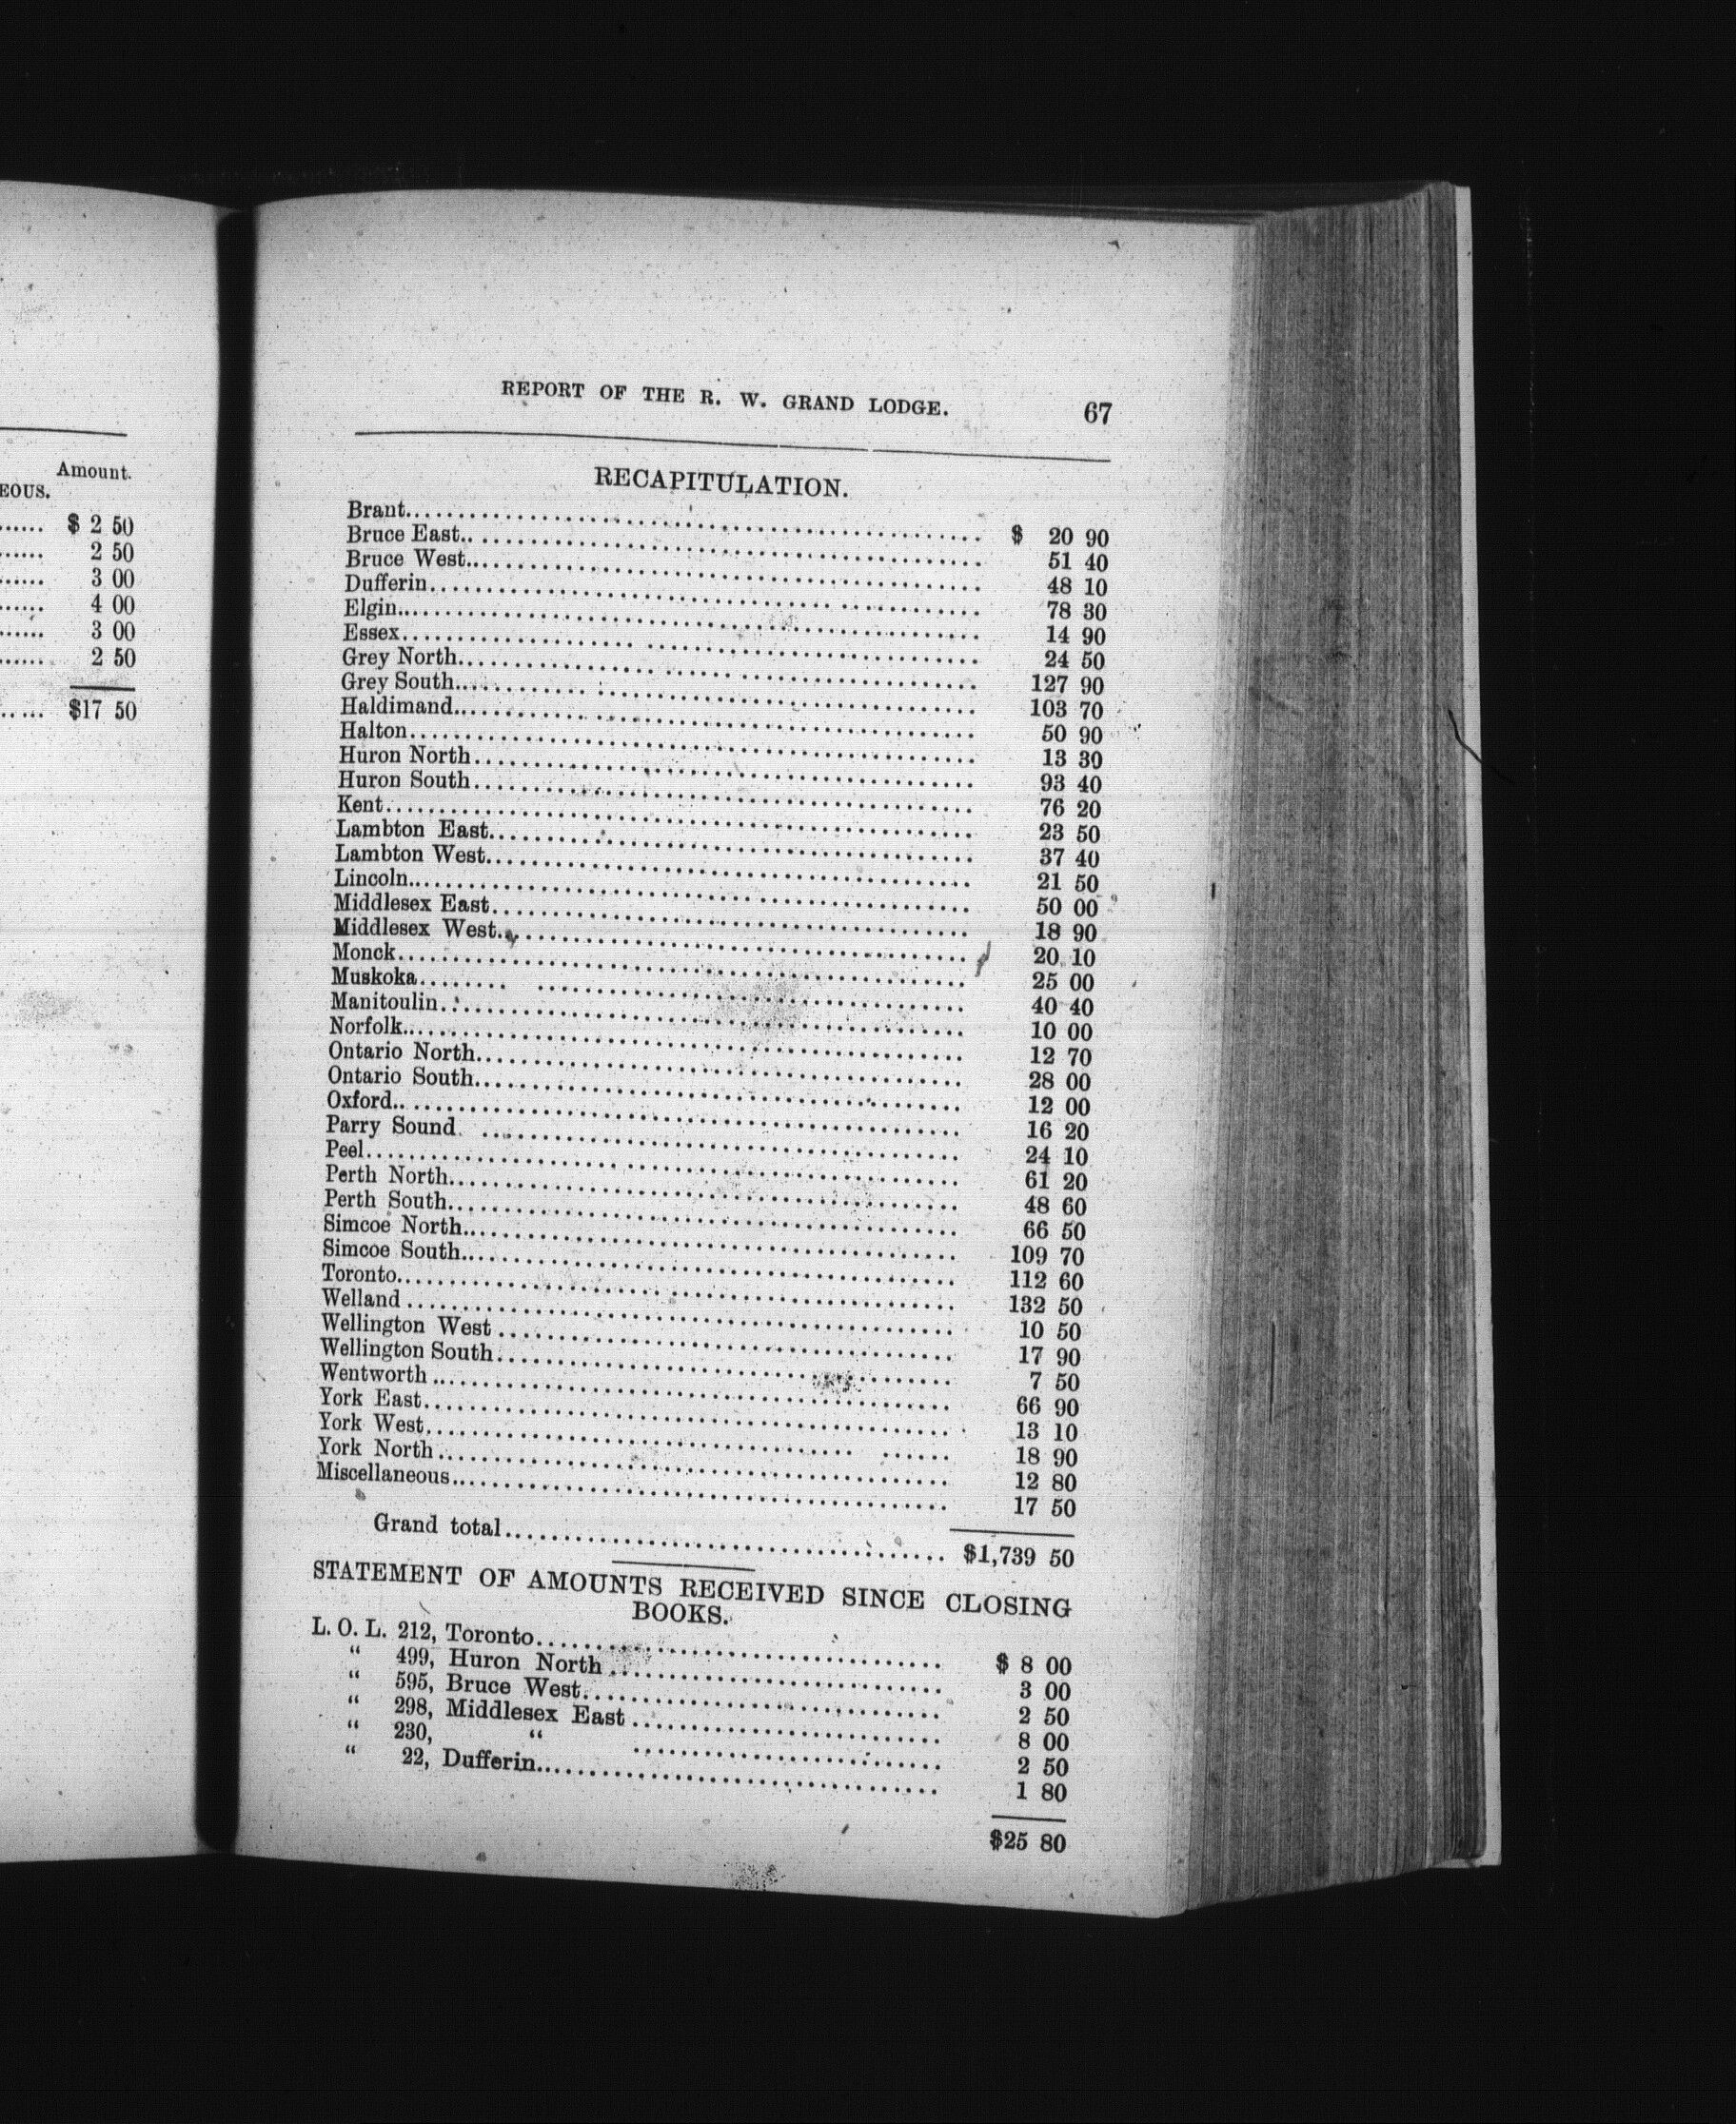 Amount.
EOUS.
...... $ 2 50
...... 2 50
...... 3 00
...... 4 00
...... 3 00
...... 2 50
...... $17 50
REPORT OF THE R. W. GRAND LODGE. 67
RECAPITULATION.
Brant.......... $ 20 90
Bruce East.......... 51 40
Bruce West.......... 48 10
Dufferin.......... 78 30
Elgin.......... 14 90
Essex.......... 24 50
Grey North.......... 127 90
Grey South.......... 103 70
Haldimand.......... 50 90
Halton.......... 13 30
Huron North.......... 93 40
Huron South.......... 76 20
Kent.......... 23 50
Lambton East.......... 37 40
Lambton West.......... 21 50
Lincoln.......... 50 00
Middlesex East.......... 18 90
Middlesex West.......... 20 10
Monck.......... 25 00
Muskoka.......... 40 40
Manitoulin.......... 10 00
Norfolk.......... 12 70
Ontario North.......... 28 00
Ontario South.......... 12 00
Oxford.......... 16 20
Parry Sound.......... 24 10
Peel.......... 61 20
Perth North.......... 48 60
Perth South.......... 66 50
Simcoe North.......... 109 70
Simcoe South.......... 112 60
Toronto.......... 132 50
Welland.......... 10 50
Wellington West.......... 17 90
Wellington South.......... 7 50
Wentworth.......... 66 90
York East.......... 13 10
York West.......... 18 90
York North.......... 12 80
Miscellaneous.......... 17 50
Grand total.......... $1,739 50
STATEMENT OF AMOUNTS RECEIVED SINCE CLOSING
BOOKS.
L. O. L. 212, Toronto.......... $ 8 00
“ 499, Huron North.......... 3 00
“ 595, Bruce West.......... 2 50
“ 298, Middlesex East.......... 8 00
“ 230, “ .......... 2 50
“ 22, Dufferin.......... 1 80
$25 80